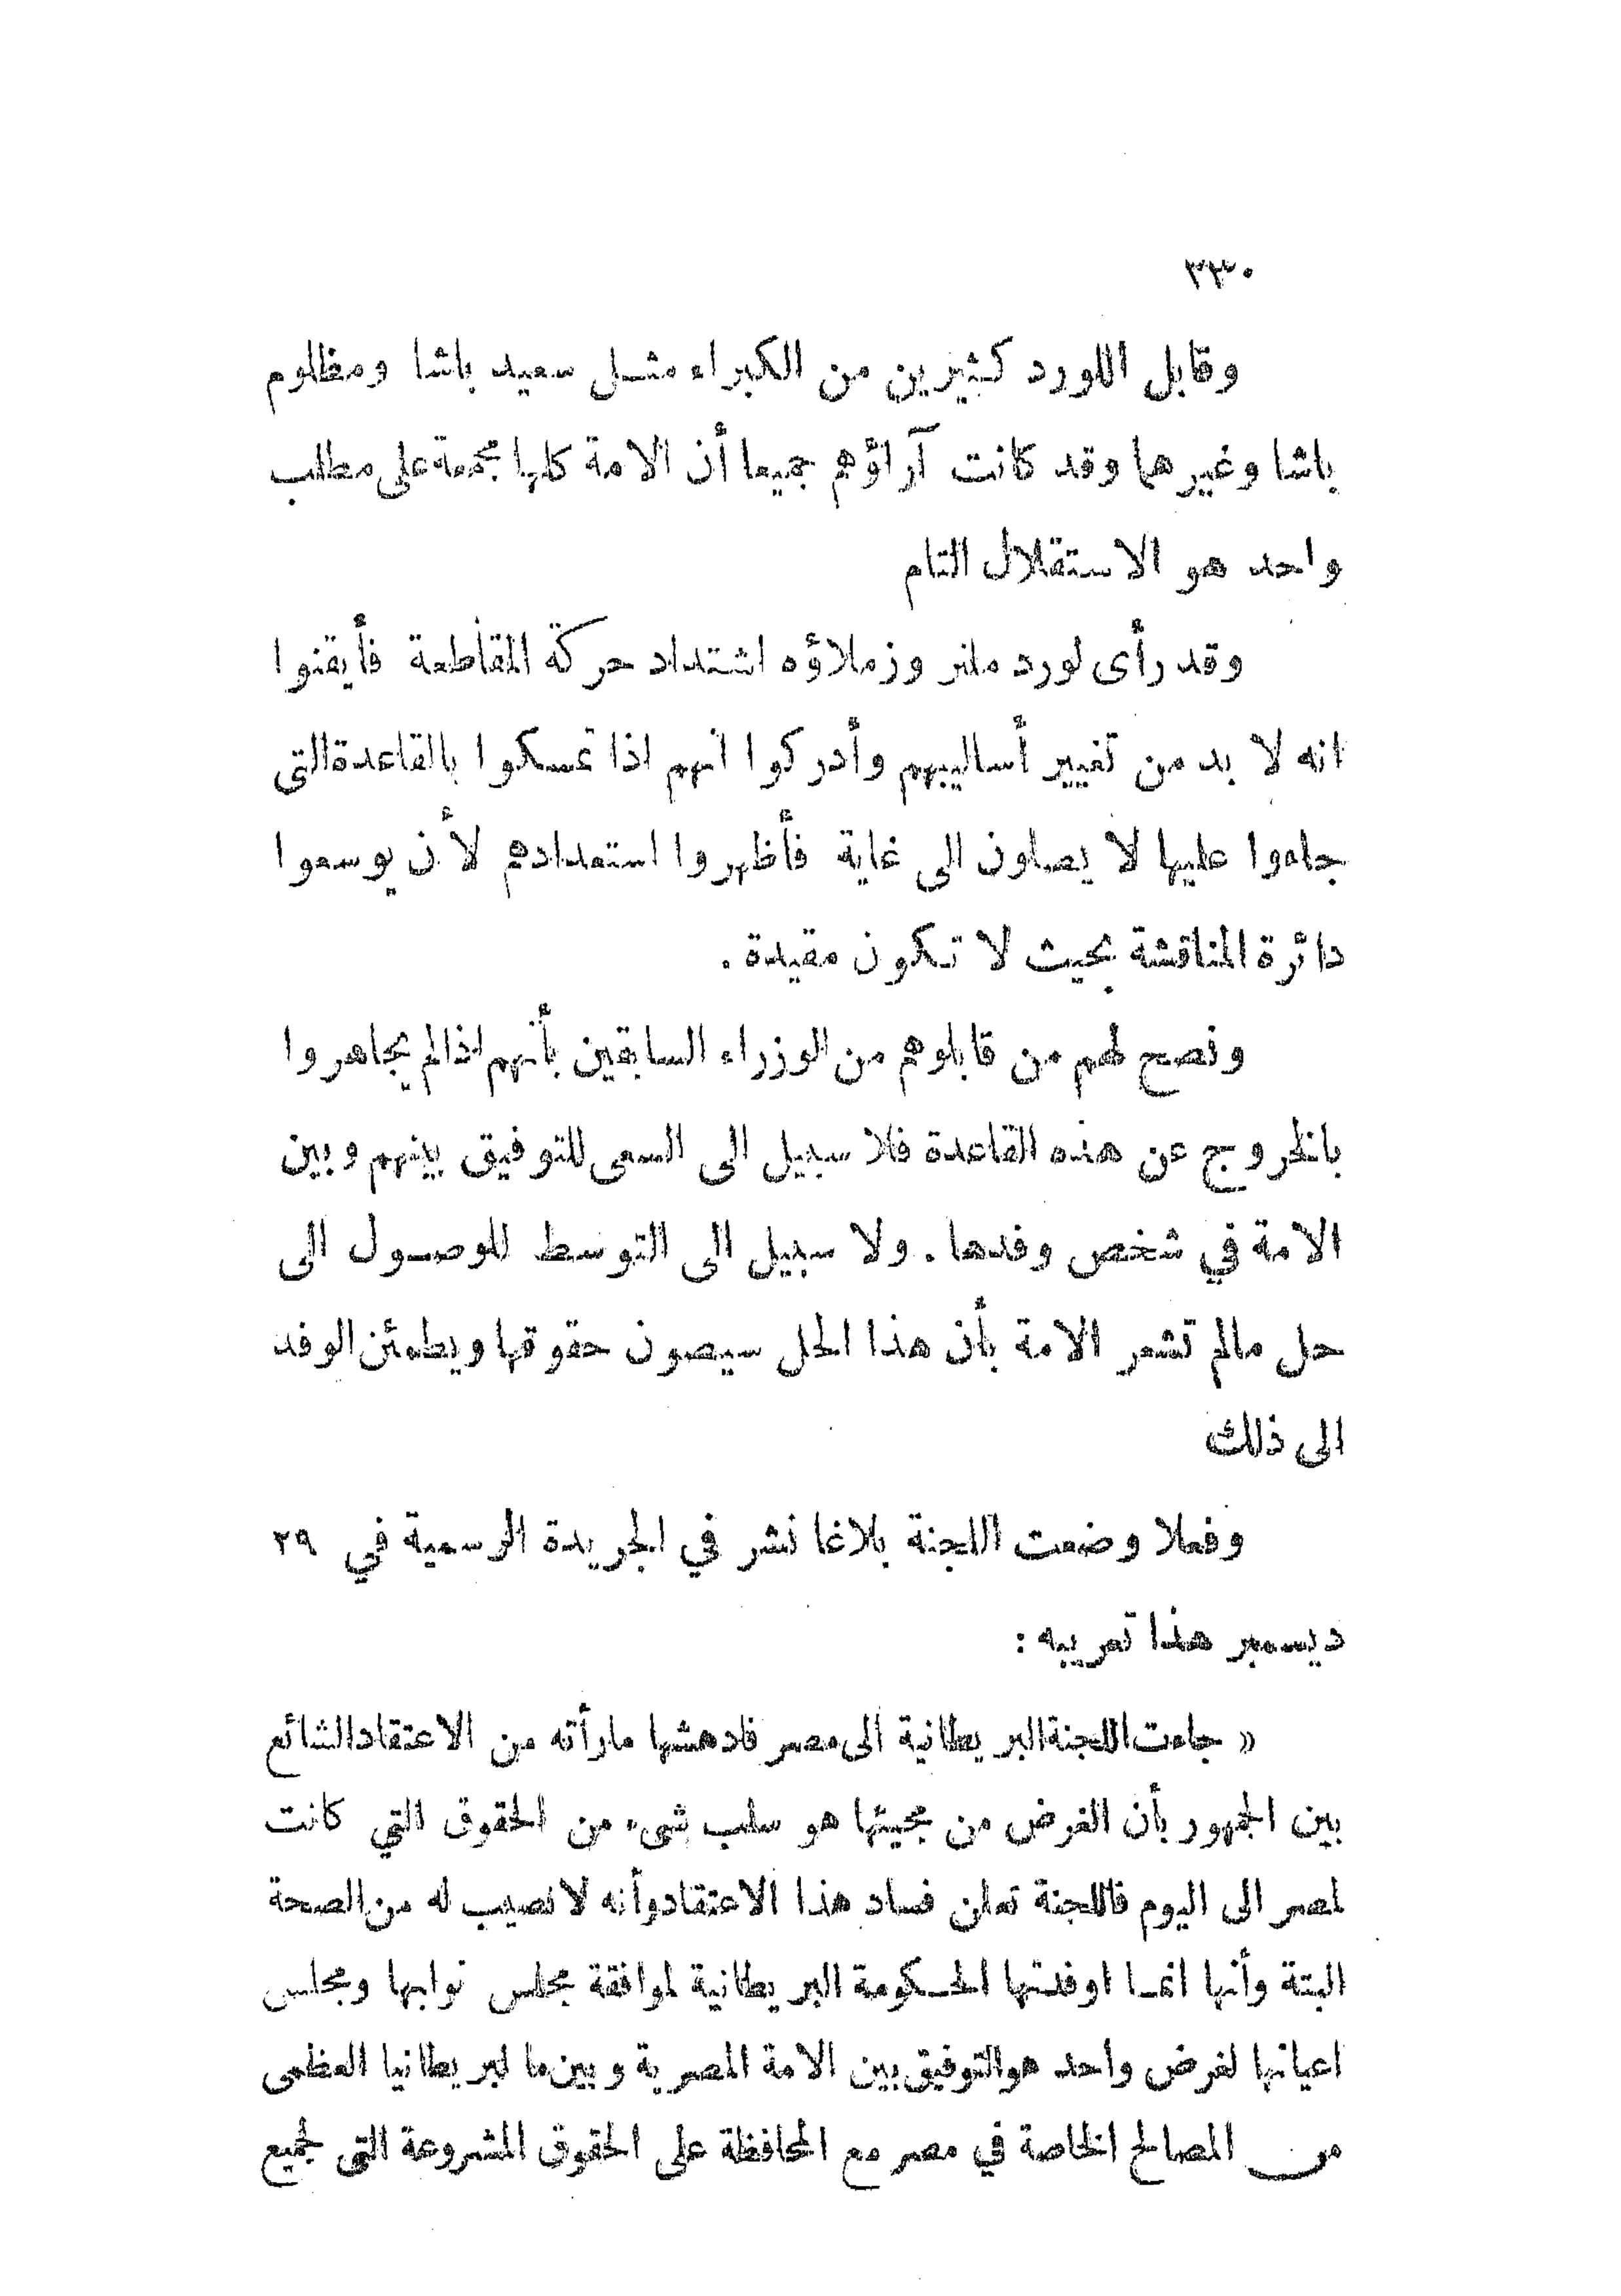 ٣٣٠
وقابل اللورد كثيرين من الكبراء مثل سعيد باشا ومظلوم
باشا وغيرهما وقد كانت آراؤهم جميعا أن الامة كلها مجمعة على مطلب
واحد هو الاستقلال التام
وقد رأى لورد ملنر وزملاؤه اشتداد حركة المقاطعة فأيقنوا
انه لا بد من تغيير أساليبهم وأدركوا انهم اذا تمسكوا بالقاعدة التى
جاءوا عليها لا يصلون الى غاية فأظهروا استعدادهم لأن يوسعوا
دائرة المناقشة بحيث لا تكون مقيدة .
ونصح لهم من قابلوهم من الوزراء السابقين بأنهم اذا لم يجاهروا
بالخروج عن هذه القاعدة فلا سبيل الى السعى للتوفيق بينهم وبين
الامة في شخص وفدها . ولا سبيل الى التوسط للوصول الى
حل مالم تشعر الامة بأن هذا الحل سيصون حقوقها ويطمئن الوفد
الى ذلك
وفعلا وضعت اللجنة بلاغا نشر في الجريدة الرسمية في ٢٩
ديسمبر هذا تعريبه :
« جاءت اللجنة البريطانية الى مصر فادهشها مارأته من الاعتقاد الشائع
بين الجمهور بأن الغرض من مجيئها هو سلب شىء من الحقوق التي كانت
لمصر الى اليوم فاللجنة تعلن فساد هذا الاعتقاد وأنه لا نصيب له من الصحة
البتة وأنها انما اوفدتها الحكومة البريطانية لموافقة مجلس نوابها ومجلس
اعيانها لغرض واحد هو التوفيق بين الامة المصرية وبين ما لبريطانيا العظمى
من المصالح الخاصة في مصر مع المحافظة على الحقوق المشروعة التى لجميع